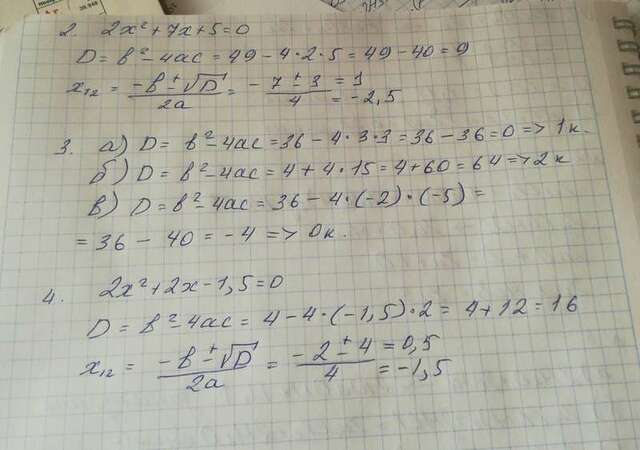 2. 2x² + 7x + 5 = 0
D = b² - 4ac = 49 - 4·2·5 = 49 - 40 = 9
x₁₂ = (-b ± √D)/2a = - (7 ± 3)/4 = 1 = -2,5
3. а) D = b² - 4ac = 36 - 4·3·3 = 36 - 36 = 0 => 1к.
б) D = b² - 4ac = 4 + 4·15 = 4 + 60 = 64 => 2к
в) D = b² - 4ac = 36 - 4·(-2)·(-5) =
= 36 - 40 = -4 => 0к.
4. 2x² + 2x - 1,5 = 0
D = b² - 4ac = 4 - 4·(-1,5)·2 = 4 + 12 = 16
x₁₂ = (-b ± √D)/2a = (-2 ± 4)/4 = 0,5 = -1,5